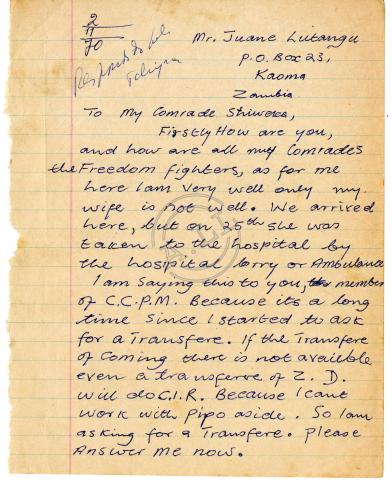 2
11
70
Responded to
Mr. Juane Liitangu
P.O. Box 23,
Kaoma
Zambia
To My Comrade Shiweka,
Firstly How are you,
and how are all my Comrades
the Freedom fighters, as for me
here I am very well only my
wife is not well. We arrived
here, but on 25th she was
taken to the hospital by
the hospital lorry or Ambulance
I am saying this to you, the member
of C.C.P.M. Because its a long
time since I started to ask
for a Transfere. If the Transfere
of Coming there is not availble
even a transferve of Z. D.
will do C.I.R. Because I cant
work with Pipo aside. So I am
asking for a Transfere. Please
Answer me now.